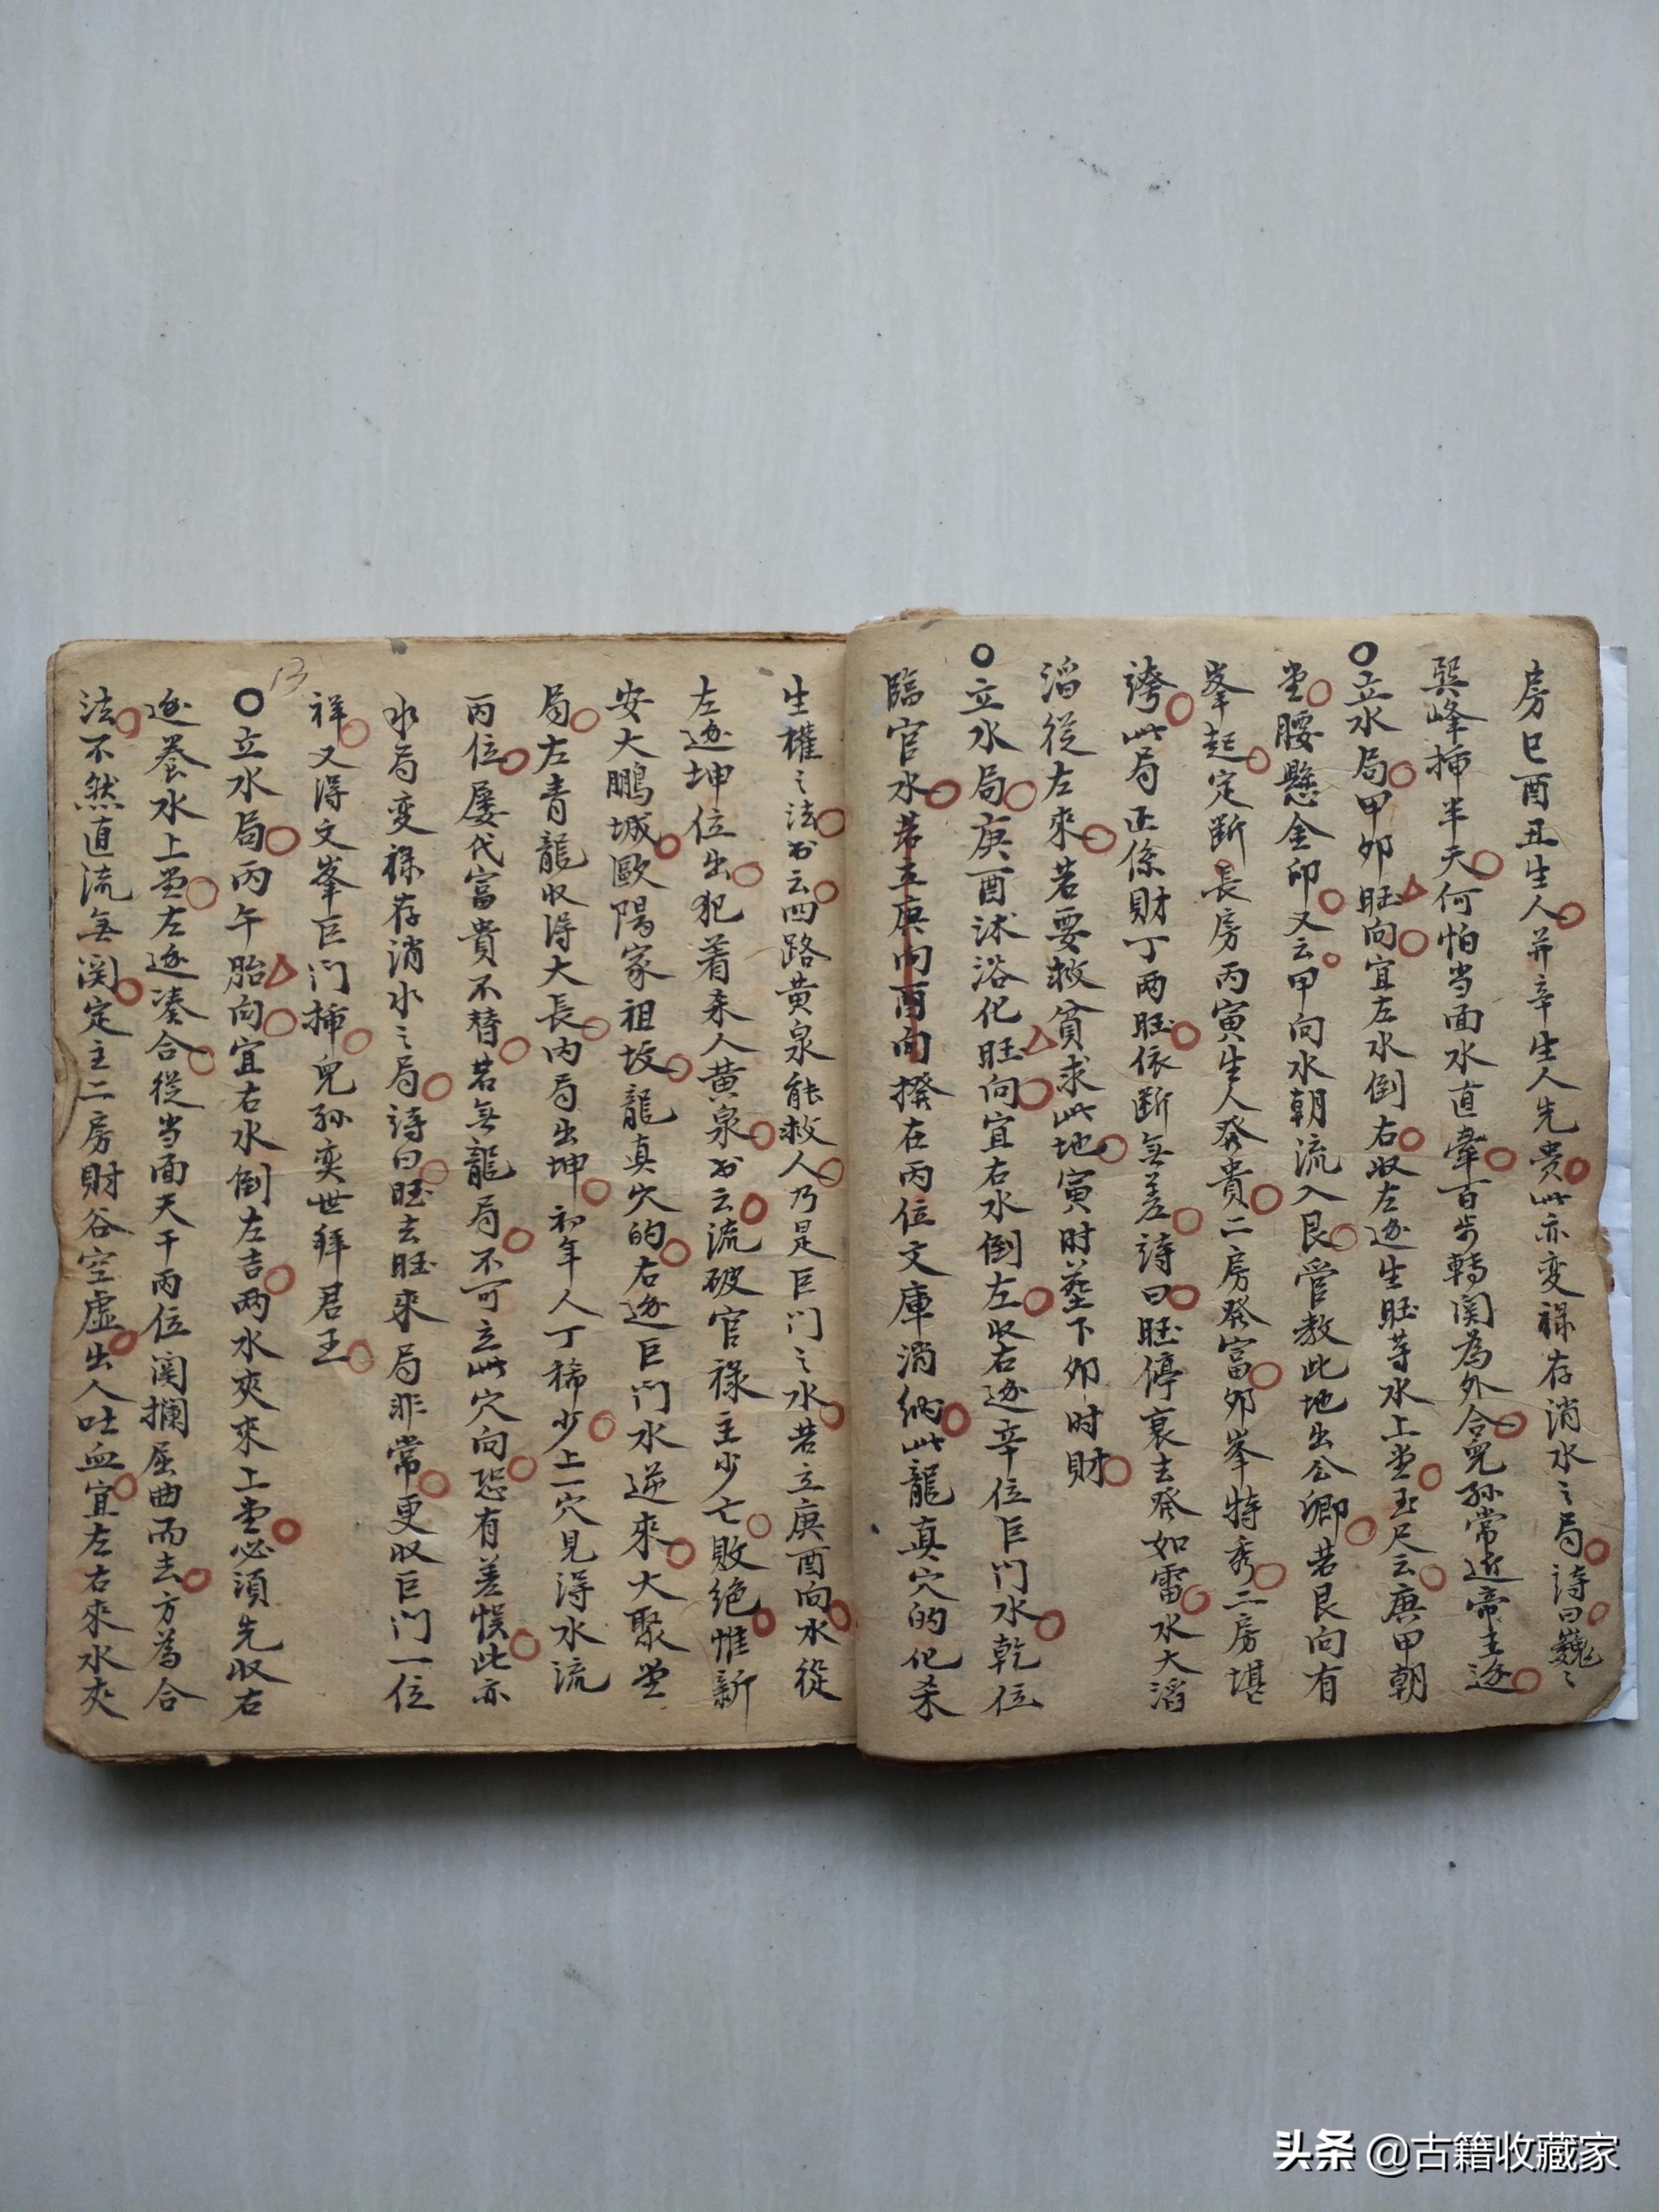 房巳酉丑生人并辛生人先贵此亦変禄存消水之局詩曰巍〻
巽峰挿半天何怕当面水直牽百步轉関為外合児孫常近帝王邉
〇立水局甲卯旺向宜左水倒右収左邉生旺等水上堂玉尺云庚甲朝
堂腰懸金印又云甲向水朝流入艮管教此地出公卿若艮向有
峯起定断長房丙寅生人癸貴二房癸富卯峯特秀三房堪
誇此局正係財丁两旺依断無差詩曰旺停衰去癸如雷水大滔
滔從左來若要救貧求此地寅时塟下卯时財
〇立水局庚酉沐浴化旺向宜右水倒左収右邉辛位巨门水乾位
臨官水若立庚向酉向揆在丙位文庫消納此龍真穴的化杀
生權之法书云四路黄泉能救人乃是巨门之水若立庚酉向水從
左邉坤位出犯着杀人黄泉书云流破官禄主少亡敗绝惟新
安大鵬城歐陽家祖坟龍真穴的右邉巨门水逆來大聚堂
局左青龍収淂大長内局出坤初年人丁稀少上一穴見淂水流
丙位屡代富貴不替若無龍局不可立此穴向恐有差悞此亦
水局变禄存消水之局詩曰旺去旺來局非常更収巨门一位
祥又淂文峯巨门挿児孫奕世拜君王
13
〇立水局丙午胎向宜右水倒左吉两水夾來上堂必須先収右
邉養水上堂左邉凑合從当面天干丙位関攔屈曲而去方為合
法不然直流無関定主二房財谷空虚出人吐血宜左右來水夾
头条 @古籍收藏家